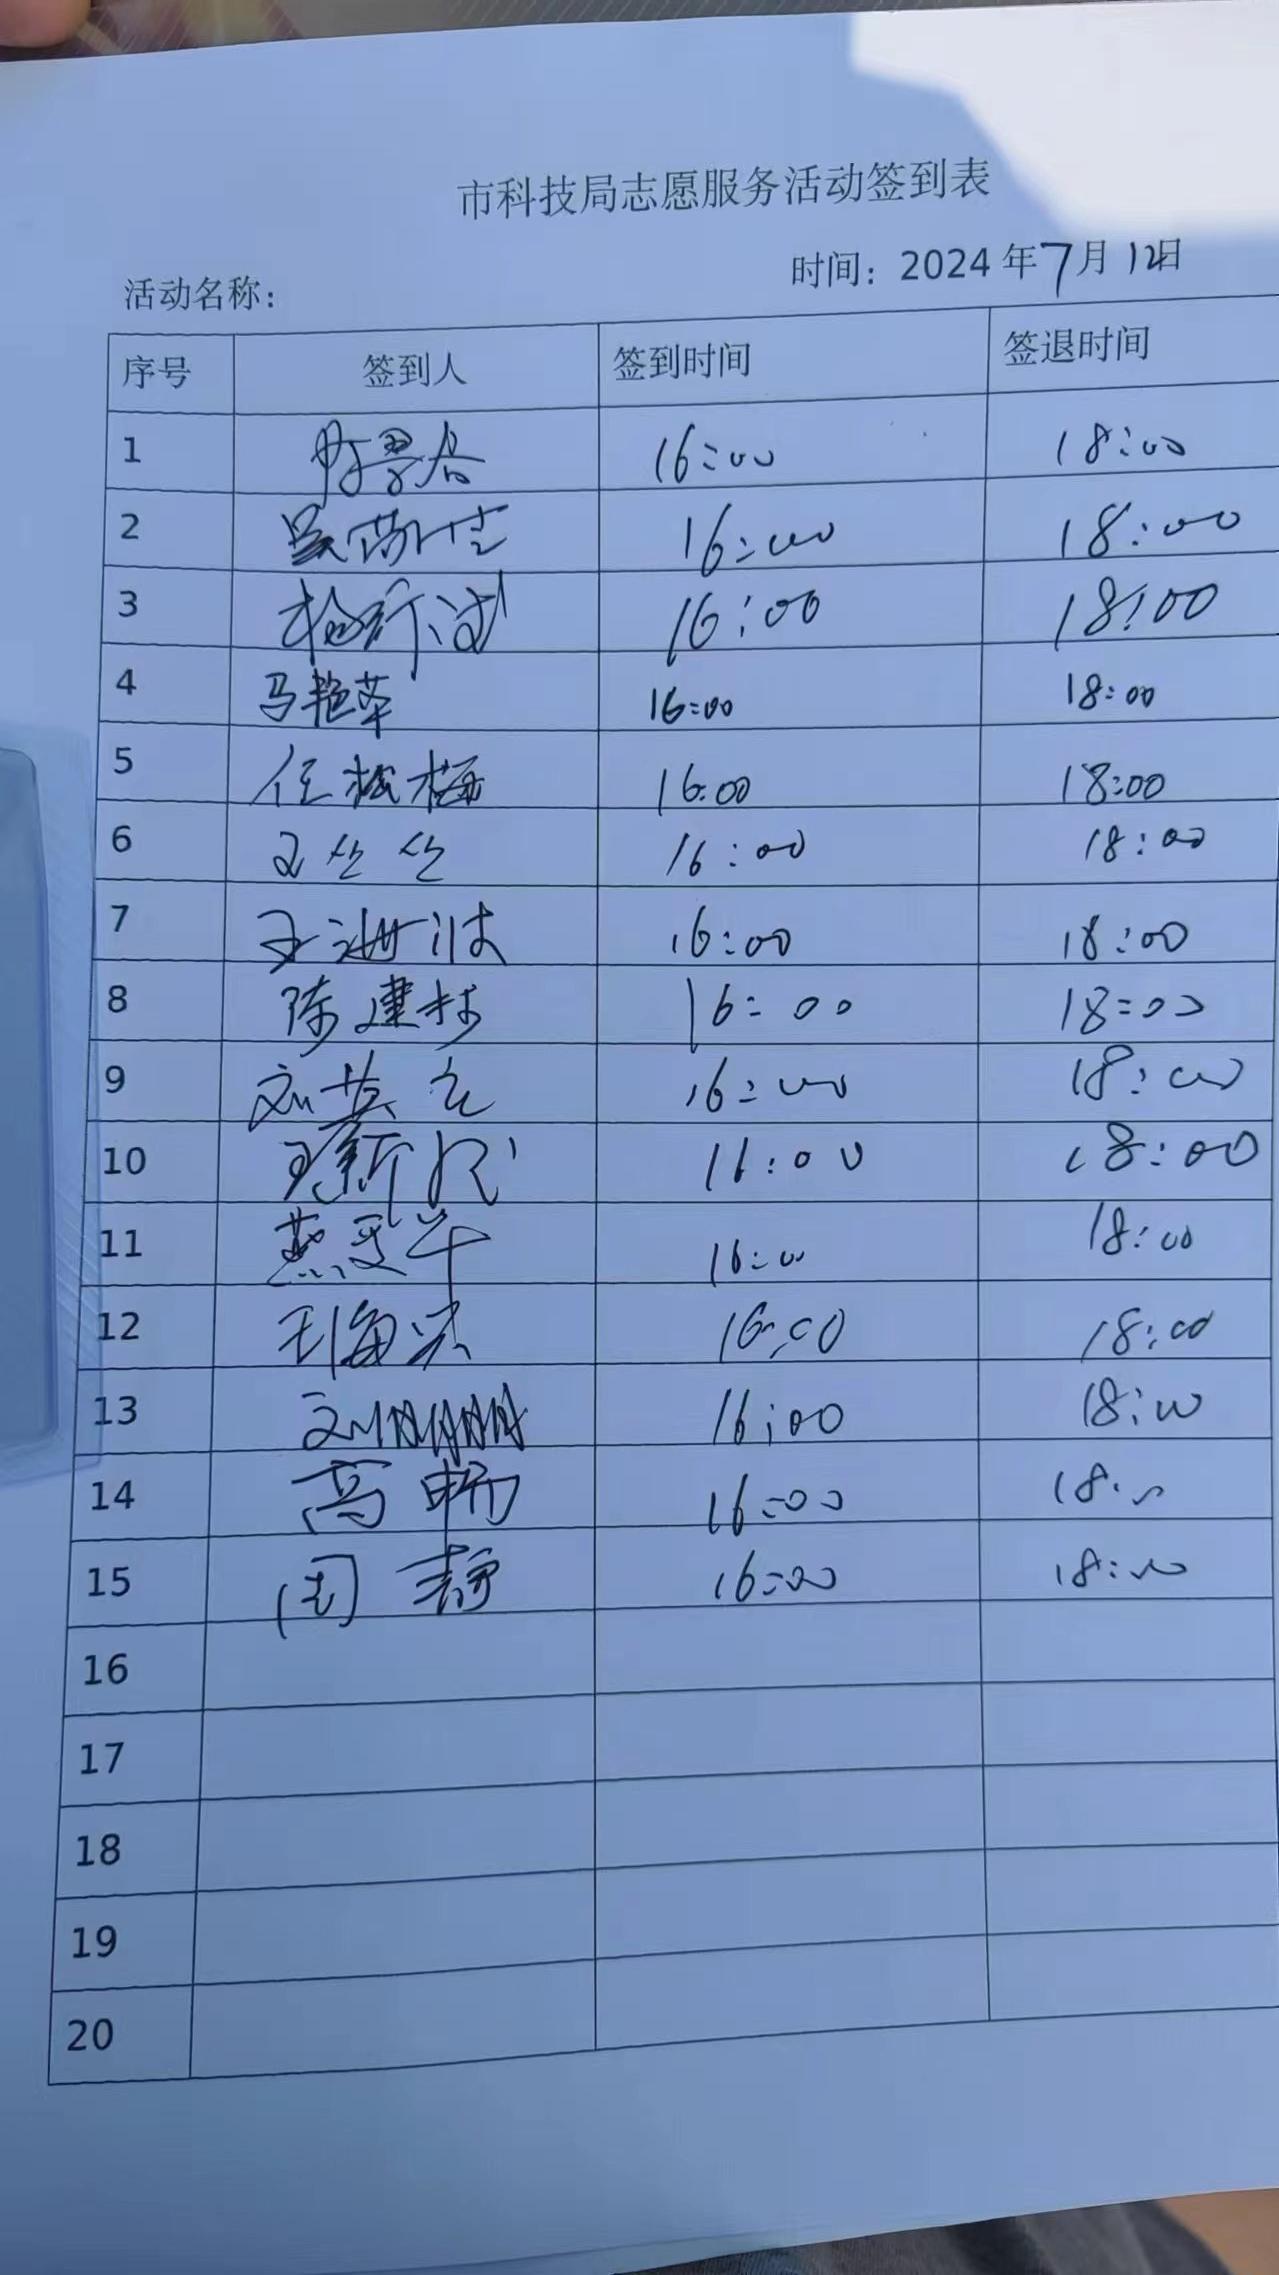 市科技局志愿服务活动签到表
时间：2024年7月12日
活动名称：
序号 签到人 签到时间 签退时间
1 16:00 18:00
2 16:00 18:00
3 16:00 18:00
4 马艳苹 16:00 18:00
5 任松梅 16:00 18:00
6 王丝丝 16:00 18:00
7 王 16:00 18:00
8 陈建材 16:00 18:00
9 刘英 16:00 18:00
10 王新 16:00 18:00
11 燕 16:00 18:00
12 王海 16:00 18:00
13 刘 16:00 18:00
14 高畅 16:00 18:00
15 周静 16:00 18:00
16
17
18
19
20